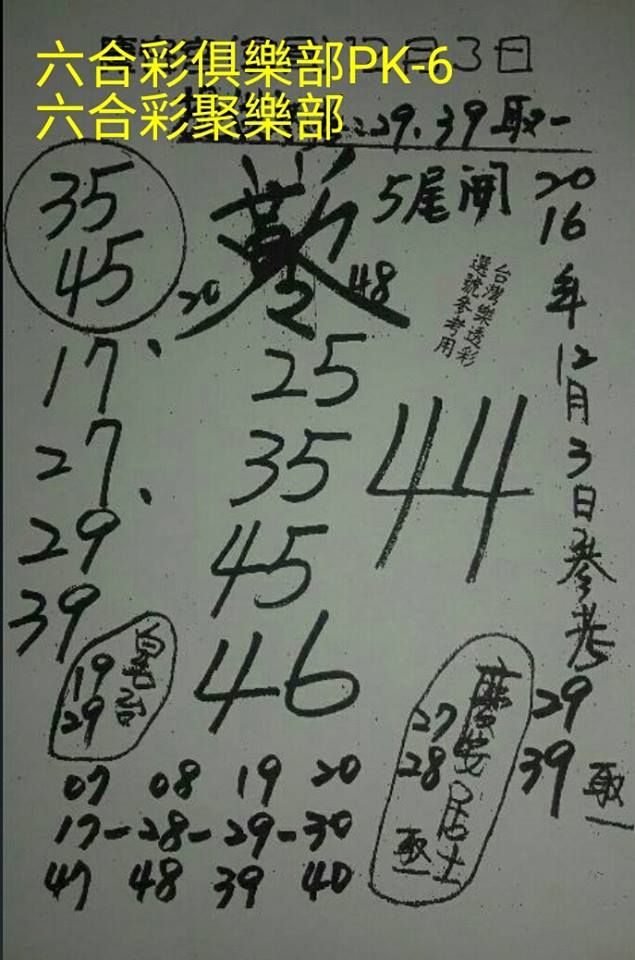 六合彩俱樂部PK-6
12月3日
六合彩聚樂部
29、39取一
35
45
20
48
5尾開
2016年12月3日參考
台灣樂透彩
選號參考用
17、
27、
29
39
25
35
45
46
44
19
29
27
28
取一
居士
29
39
取一
07 08 19 20
17-28-29-30
47 48 39 40